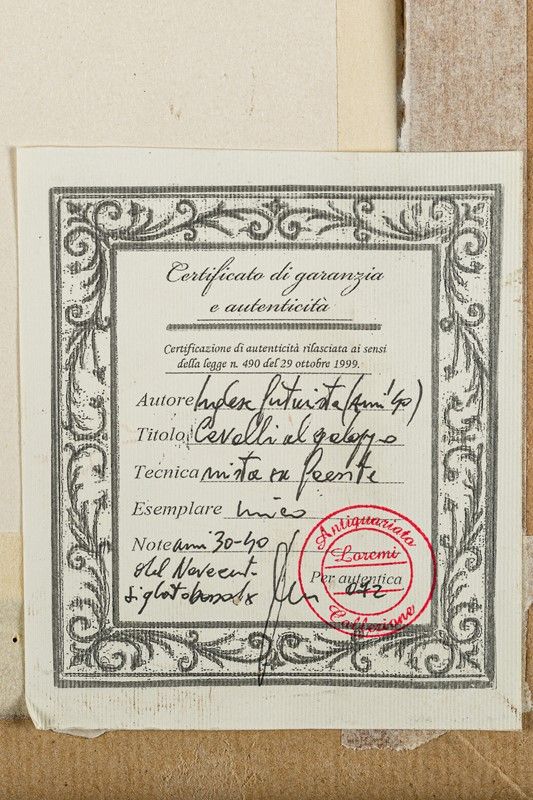 Certificato di garanzia
e autenticità
Certificazione di autenticità rilasciata ai sensi
della legge n. 490 del 29 ottobre 1999.
Autore Inglese futurista (Anni '40)
Titolo Cavalli al galoppo
Tecnica mista su
Esemplare unico
Note anni 30-40
del Novecent.
siglato basso dx
Antiquariato
Loremi
Per autentica
072
Collezione